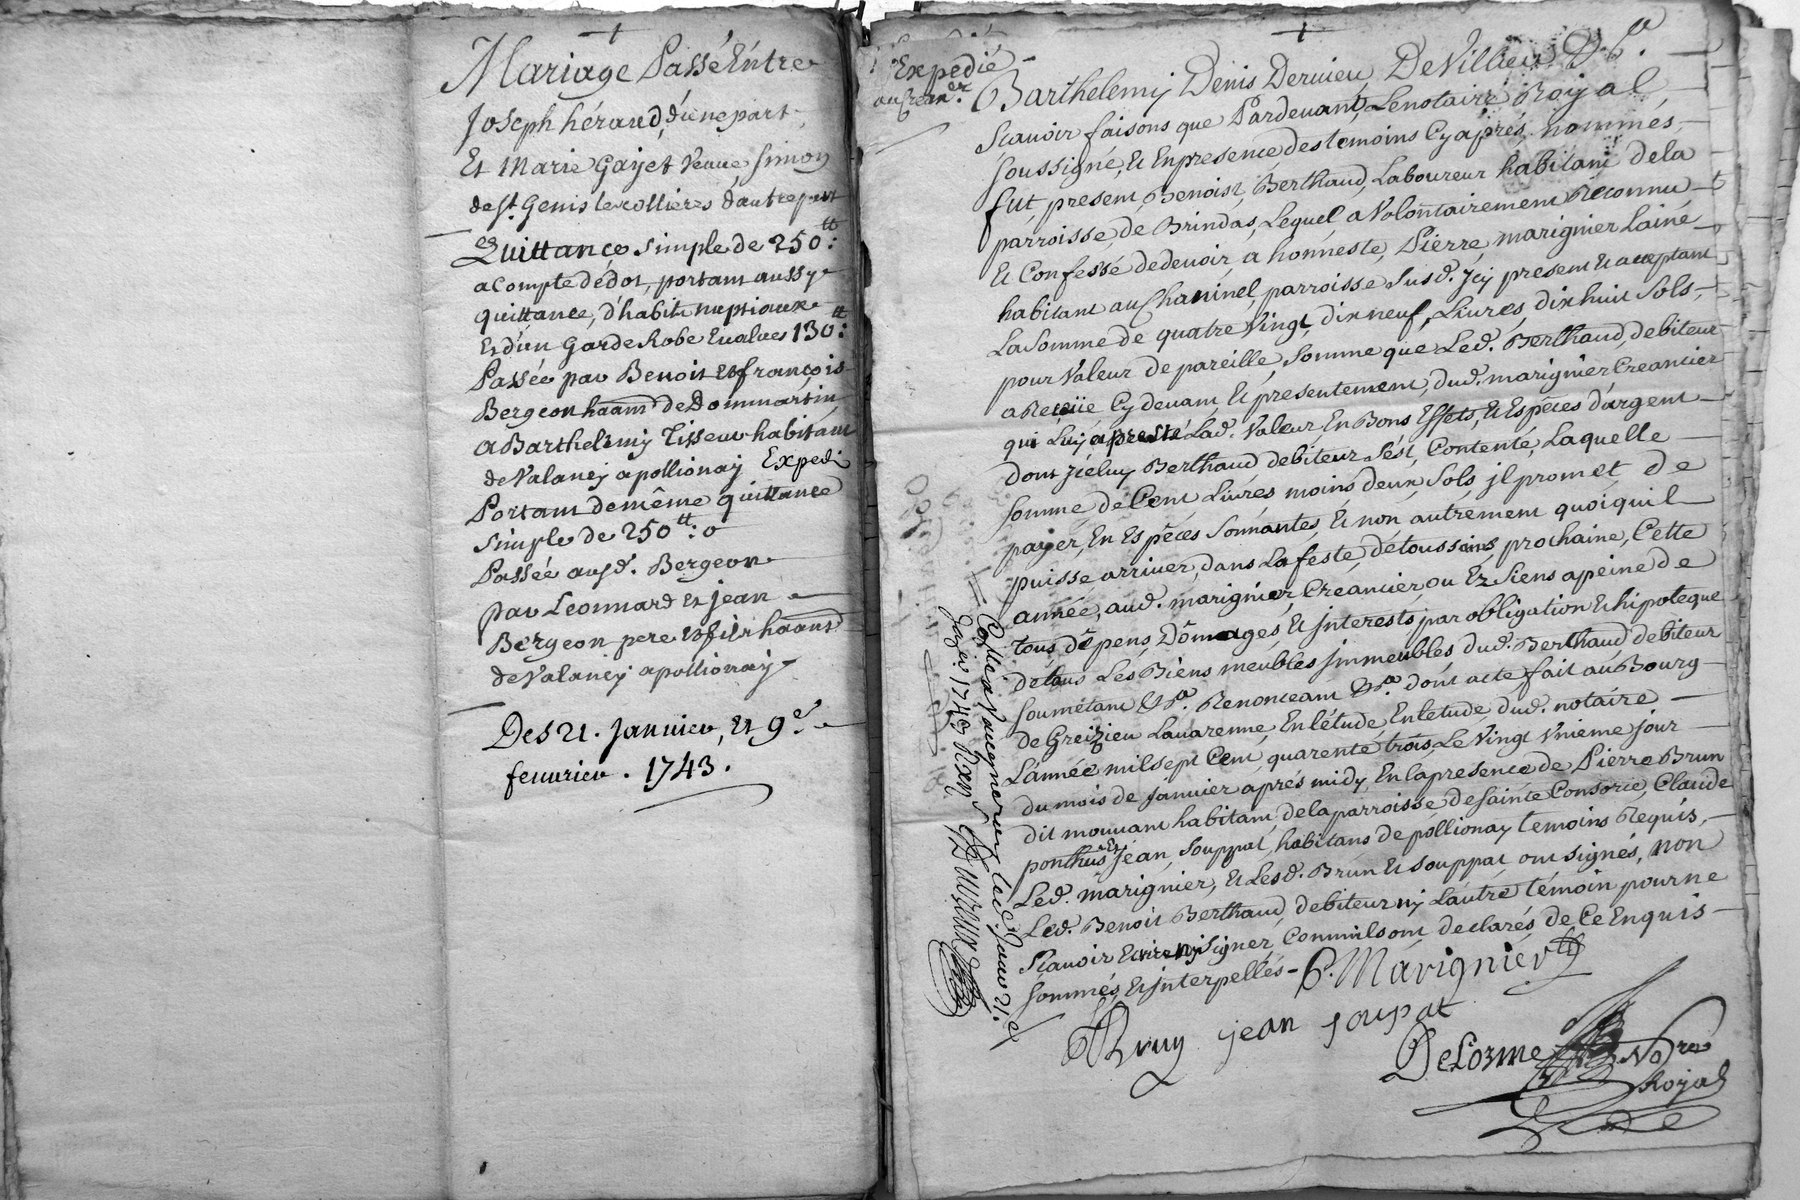 Mariage Passé Entre
Joseph héraud, d'une part,
Et Marie Gayet veuve Simon
de St. Genis les ollieres d'autre part
Quittance simple de 250 tt:
a Compte de dot, portant aussy
quittance, d'habits nuptiaux
Et d'un Garde Robe Evalues 130 tt:
Passée par Benoit et françois
Bergeon haans de Dommartin
a Barthelemy Tisseur habitant
de Valancy a pollionay Expedi
Portant de même quittance
Simple de 250 tt: o
Passée ausd. Bergeon
par Leonnard et jean
Bergeon pere et fils haans
de Valancy a pollionay
Des 21. Janvier, Et 9e
fevvrier. 1743.
Expedié
au Crean.er
Barthelemy Denis Dervieu De Villieu &a.
Scavoir faisons que Pardevant, Le notaire Royal
soussigné, Et En presence des temoins Cy aprés nommés,
fut present, Benoist, Berthaud, Laboureur habitant de la
parroisse, de Brindas, Lequel a Volontairement Reconnu
Et Confessé de devoir a honneste, Pierre, marignier Lainé
habitant au Chaninel, parroisse Susd. jcy present Et acceptant
La Somme de quatre Vingt, dix neuf, Livres, dix huit Sols,
pour Valeur de pareille, Somme que Led. Berthaud, debiteur
a Reçüe Cy devant Et presentement, dud. marignier Creancier
qui Luy a presté Lad. Valeur En Bons Effets, Et Espèces d'argent
dont jceluy Berthaud debiteur S'est, Contenté, Laquelle
Somme de Cent Livres moins deux Sols jl promet de
payer, En Espèces Sonnantes, Et non autrement quoiquil
puisse arriver, dans La feste, de toussains prochaine, Cette
année, aud. marignier, Creancier, ou Ez Siens a peine de
tous dépens, Dômages, Et jnterests, par obligation Et hipoteque
de tous Les Biens meubles jmmeubles dud. Berthaud debiteur
Soumétant &a. Renonceant &a. dont acte fait au Bourg
de Greizieu Lavarenne En létude, En letude, dud. notaire
Lannée mil sept Cent, quarente trois Le Vingt Vnieme jour
du mois de janvier aprés midy, En la presence de Pierre Brun
dit mouvant habitant de la parroisse de Sainte Consorce, Claude
ponthus Et jean, Souppat, habitans de pollionay temoins Requis,
Led. marignier, Et Lesd. Brun Et Souppat, ont signés, non
Led. Benoit Berthaud, debiteur ny Lautre témoin pour ne
Scavoir Ecrire ny signer Comm'ils ont declarés de Ce Enquis
sommés Et jnterpellés - P. Marignier
P Brun jean soupat
DeLorme No.re
Royal
a Vaugneray le
1743